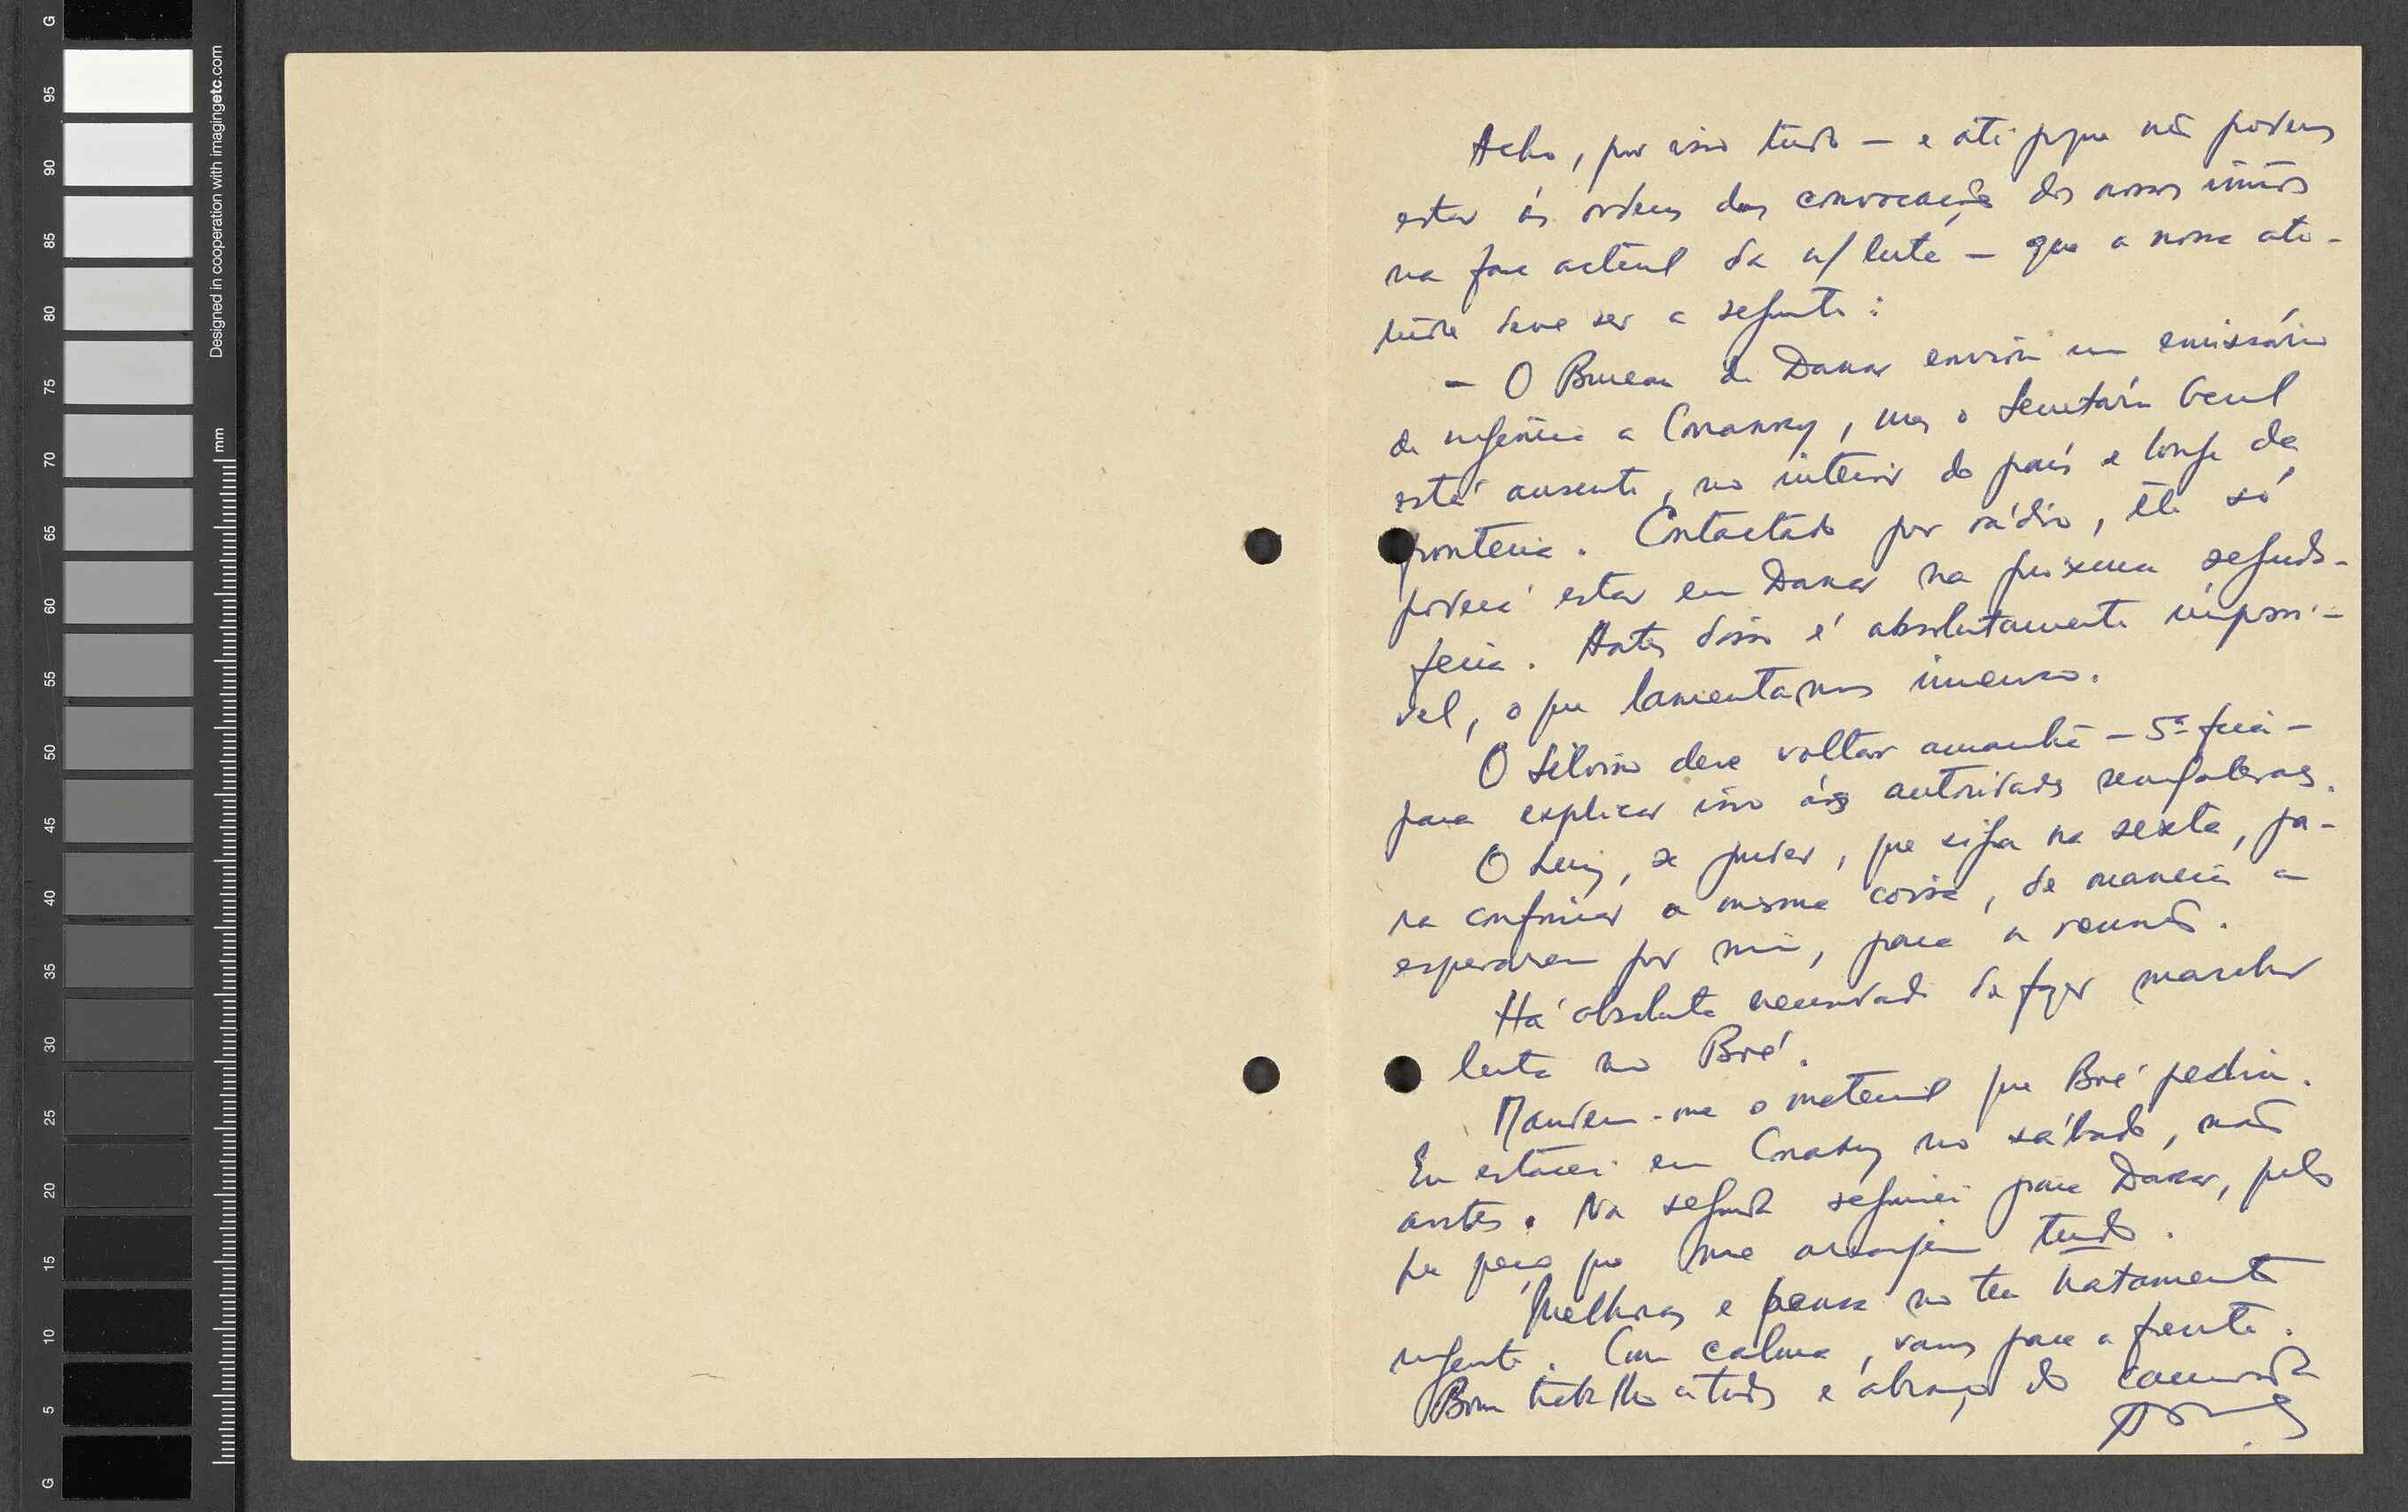 Acho, por isso tudo — e até pq não podemos
estar às ordens das convocações dos nossos irmãos
na fase actual da n/ luta — que a nossa ati-
tude deve ser a seguinte:
— O Bureau de Dakar enviou um emissário
de urgência a Conakry, mas o Secretário Geral
está ausente, no interior do país e longe da
fronteira. Contactado por rádio, êle só
poderá estar em Dakar na próxima segunda-
feira. Antes disso é absolutamente impossí-
vel, o que lamentamos imenso.
O Silvino deve voltar amanhã — 5ª feira —
para explicar isso às autoridades senegalesas.
O Luiz, se puder, que siga na sexta, pa-
ra confirmar a mesma coisa, de maneira a
esperarem por mim, para a reunião.
Há absoluta necessidade de fazer marchar
luta no Boé.
Mandem-me o material que Boé pediu.
Eu estarei em Conakry no sábado, não
antes. Na segunda seguirei para Dakar, pelo
que peço que me arranjem tudo.
Melhoras e pensa no teu tratamento
urgente. Com calma, vamos para a frente.
Bom trabalho a todos e abraço do camarada
G 95 90 85 80 75 70 65 60 55 50 45 40 35 30 25 20 15 10 5 G
mm
Designed in cooperation with imagingetc.com